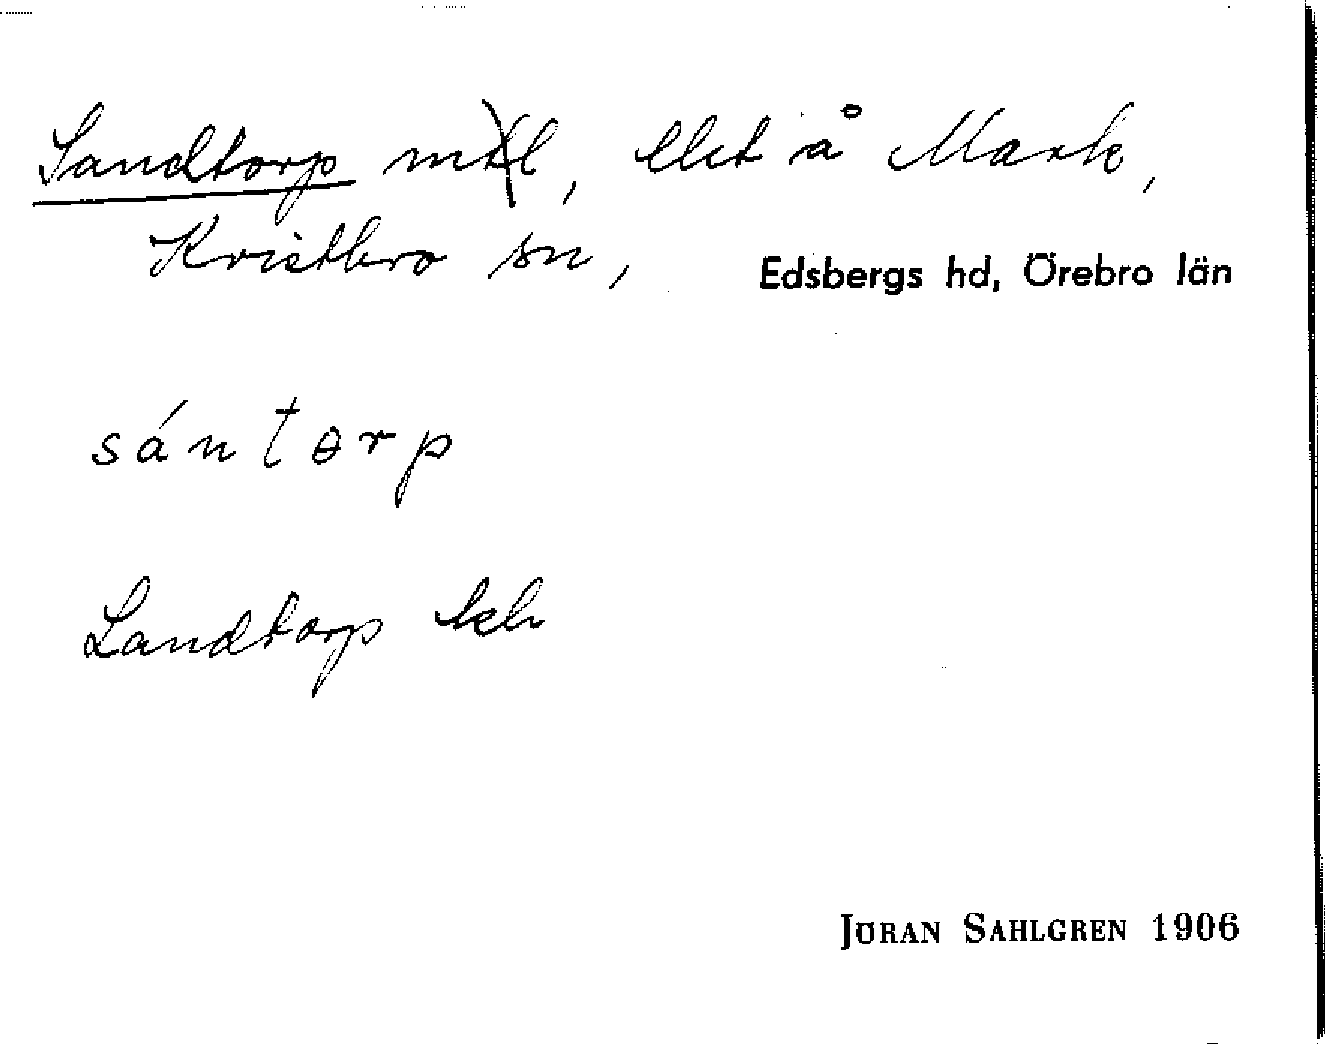 Sandtorp mtl, Uet å Mark,
Kvistbro sn, Edsbergs hd, Örebro län
sántorp
Sandtorp
JÖRAN SAHLGREN 1906